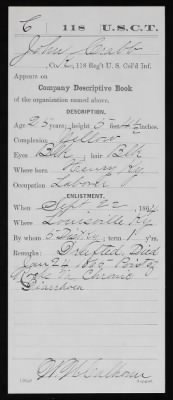 C | 118 | U.S.C.T.
John Cubb
Co. K, 118 Reg't U. S. Col'd Inf.
Appears on
Company Descriptive Book
of the organization named above.
DESCRIPTION.
Age 25 years; height 5 feet inches.
Complexion Yellow
Eyes Blk; hair Blk
Where born Henry, Ky.
Occupation Laborer
ENLISTMENT.
When Sept. 22, 1864.
Where Louisville Ky
By whom; term 1 y'rs.
Remarks: Drafted, Died
Jan 1865 Point of
Rocks Va Chronic
Diarrhoea
Calhoun